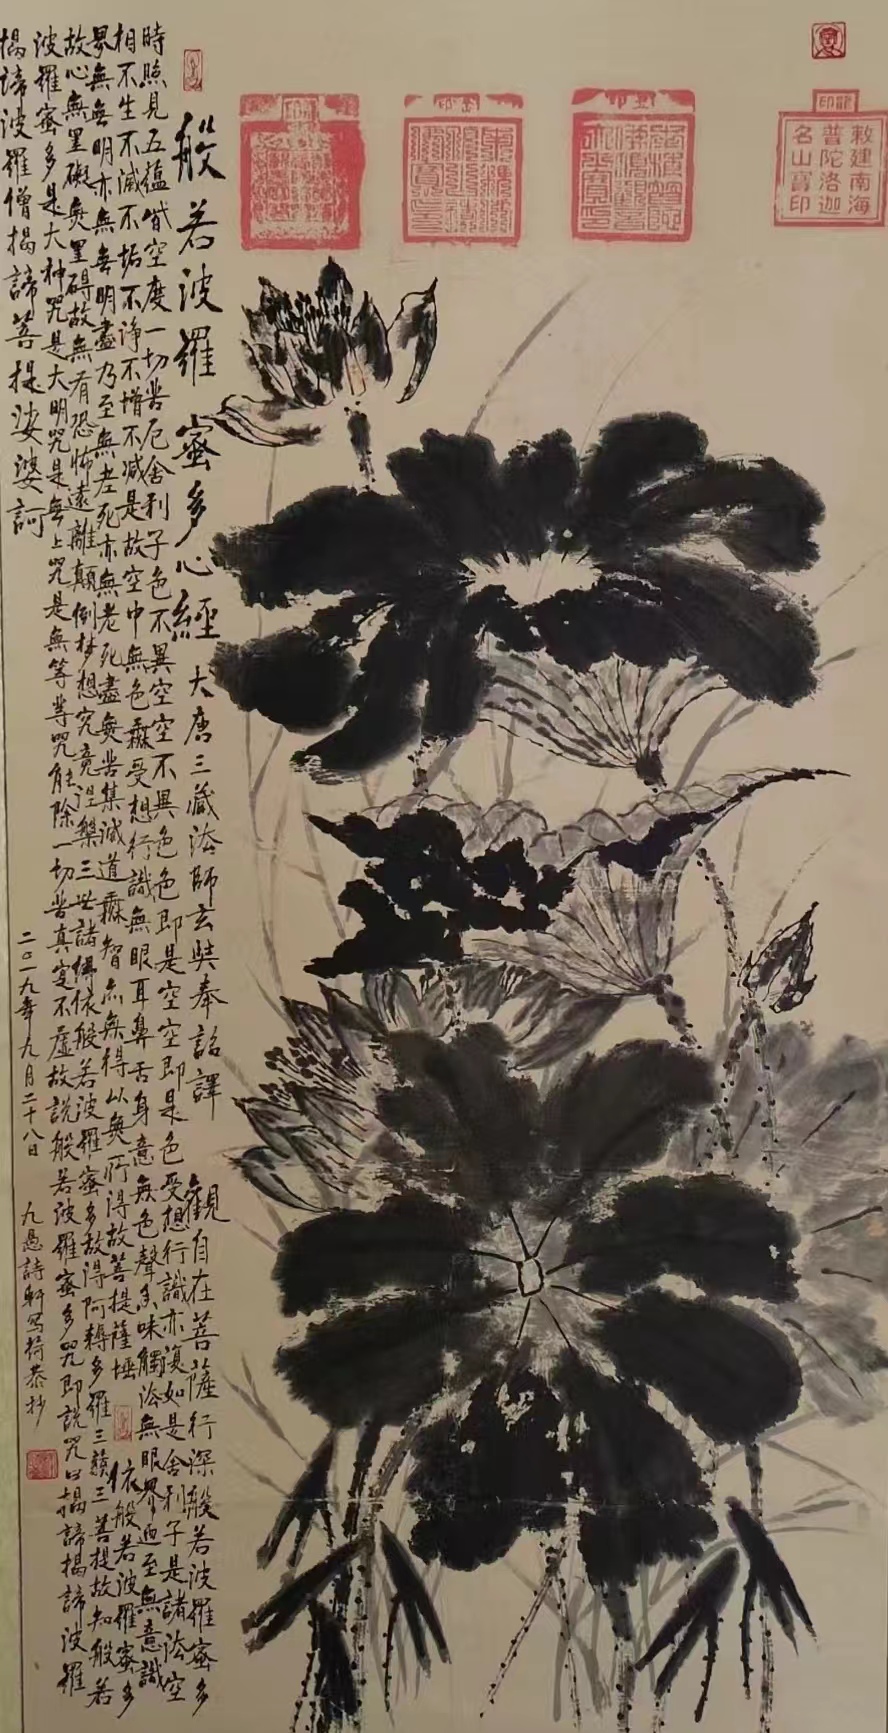 敕建南海
普陀洛迦
名山寶印
般若波羅蜜多心經 大唐三藏法師玄奘奉詔譯 觀自在菩薩行深般若波羅蜜多
時照見五蘊皆空度一切苦厄舍利子色不異空空不異色色即是空空即是色受想行識亦復如是舍利子是諸法空
相不生不滅不垢不淨不增不減是故空中無色無受想行識無眼耳鼻舌身意無色聲香味觸法無眼界迺至無意識
界無無明亦無無明盡乃至無老死亦無老死盡無苦集滅道無智亦無得以無所得故菩提薩埵 依般若波羅蜜多
故心無罣礙無罣碍故無有恐怖遠離顛倒夢想究竟涅槃三世諸佛依般若波羅蜜多故得阿耨多羅三藐三菩提故知般若
波羅蜜多是大神咒是大明咒是無上咒是無等等咒能除一切苦真實不虛故說般若波羅蜜多咒即說咒曰揭諦揭諦波羅
揭諦波羅僧揭諦菩提娑婆訶
二〇一九年九月二十八日 九愚詩軒寫荷恭抄